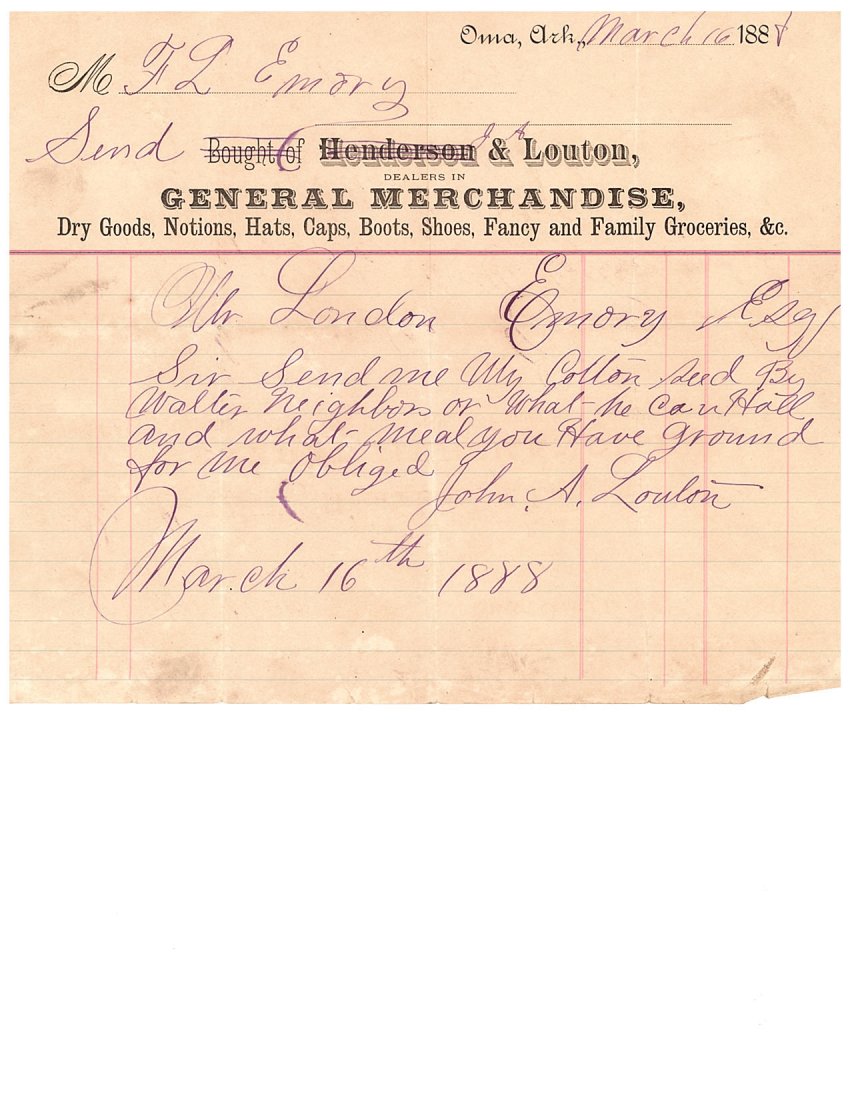 Oma, Ark, March 16 1888
M F L Emory
Send Bought of Henderson J A & Louton,
DEALERS IN
GENERAL MERCHANDISE,
Dry Goods, Notions, Hats, Caps, Boots, Shoes, Fancy and Family Groceries, &c.
Mr. London Emory Esq
Sir Send me My Cotton seed By
Walter Neighbors or What he can Hall
and what meal you Have ground
for me Obliged
John. A. Louton
March 16th 1888